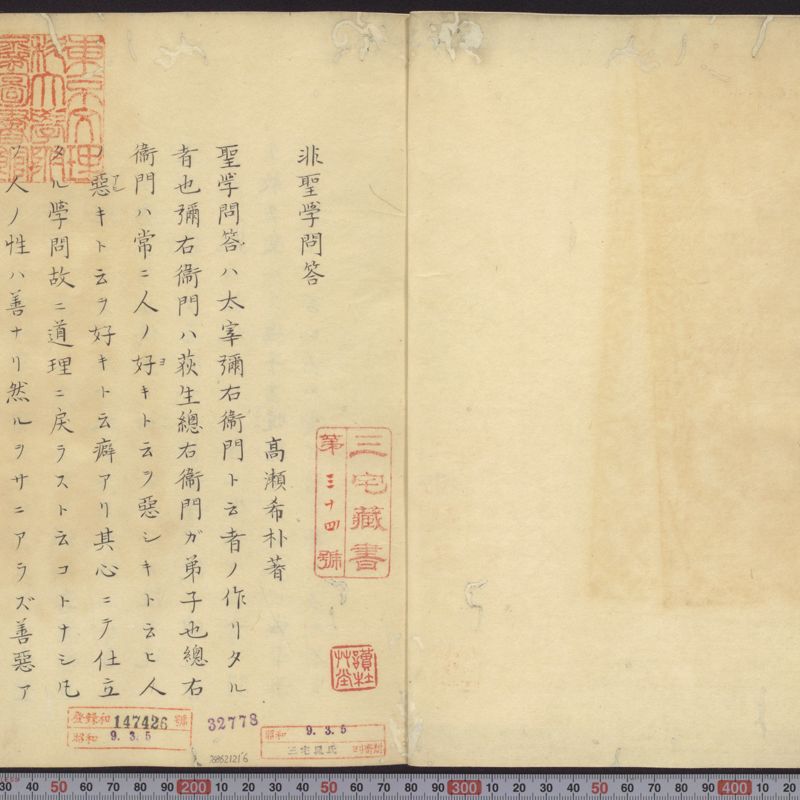 非聖学問答
高瀬希朴著
聖学問答ハ太宰彌右衛門ト云者ノ作リタル
者也彌右衛門ハ荻生總右衛門ガ弟子也總右
衛門ハ常ニ人ノ好ヨキト云ヲ惡シキト云ヒ人
ノ惡キト云ヲ好キト云癖アリ其心ニテ仕立
タル学問故ニ道理ニ戻ラスト云コトナシ凡
ソ人ノ性ハ善ナリ然ルヲサニアラズ善惡ア
三宅藏書
第三十四號
讀杜艸堂
東京文理
科大學附
屬圖書館
登録和 147426 號
昭和 9. 3. 5
32778
昭和 9. 3. 5
三宅